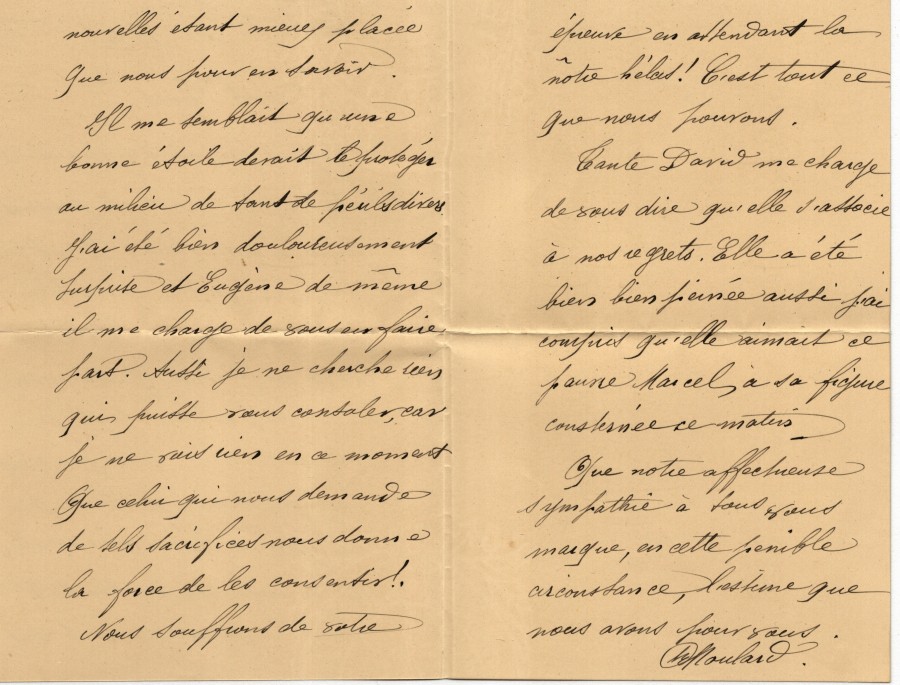 nouvelles étant mieux placée
que nous pour en savoir.
Il me semblait qu'une
bonne étoile devait le protéger
au milieu de tant de périls divers
J'ai été bien douloureusement
surprise et Eugène de même
il me charge de vous en faire
part. Aussi je ne cherche rien
qui puisse vous consoler, car
je ne vois rien en ce moment
Que celui qui nous demande
de tels sacrifices nous donne
la force de les consentir!.
Nous souffrons de votre
épreuve en attendant la
nôtre hélas! C'est tout ce
que nous pouvons.
Tante David me charge
de vous dire qu'elle s'associe
à nos regrets. Elle a été
bien bien peinée aussi j'ai
compris qu'elle aimait ce
pauvre Marcel, à sa figure
consternée ce matin
Que notre affectueuse
sympathie à tous vous
marque, en cette pénible
circonstance, l'estime que
nous avons pour vous.
Moulard.